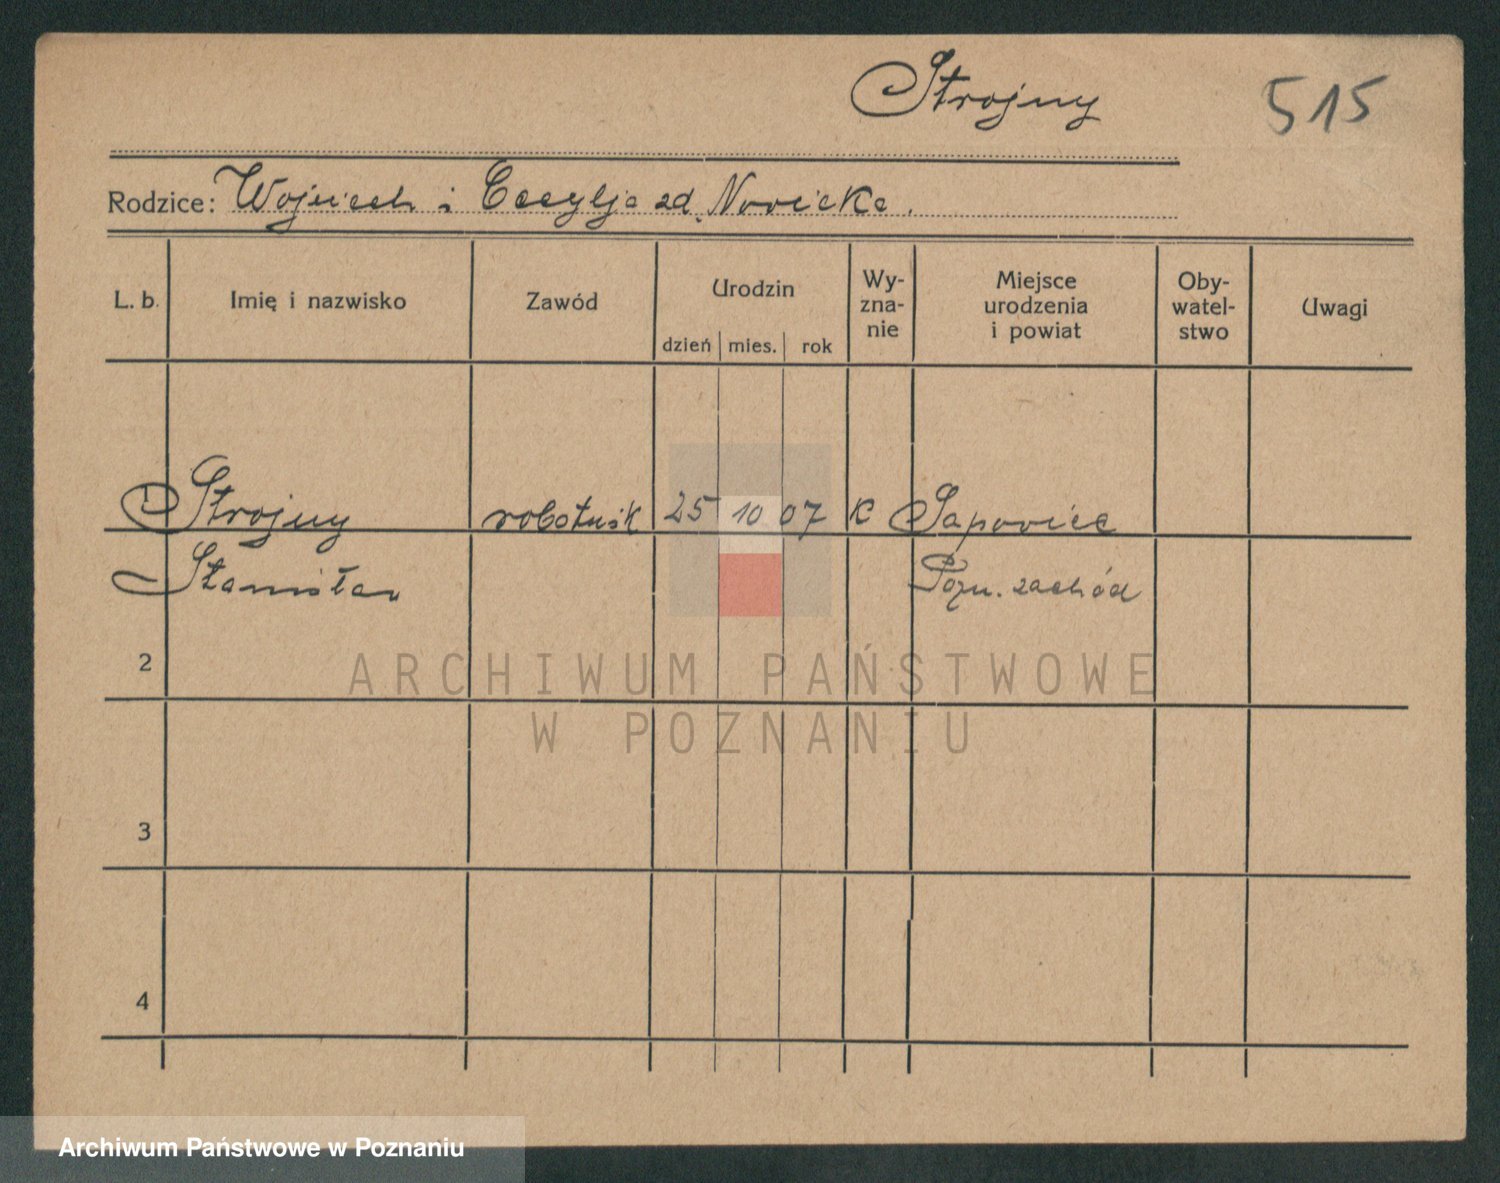 Strojny 515
Rodzice: Wojciech i Cecylja zd. Nowicka.
L. b. Imię i nazwisko Zawód Urodzin Wy-zna-nie Miejsce urodzenia i powiat Oby-watel-stwo Uwagi
dzień mies. rok
1 Strojny robotnik 25 10 07 K Sapowice
Stanisław Pozn. zachód
2
3
4
ARCHIWUM PAŃSTWOWE
W POZNANIU
Archiwum Państwowe w Poznaniu